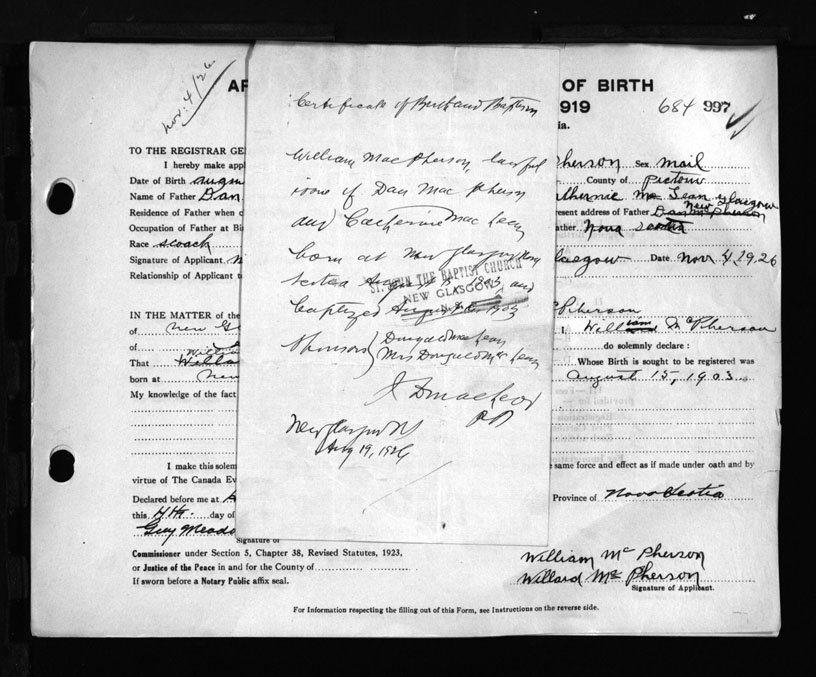 Nov. 4/26
AP
OF BIRTH
919
684 997
ia.
TO THE REGISTRAR GE
I hereby make appl
herson Sex Mail
Date of Birth
County of Pictou
Name of Father Dan
Mc Lean Glasgow
New
Residence of Father when c
resent address of Father Dan McPherson
Occupation of Father at Bi
ather. Nova Scotia
Race
Signature of Applicant
lasgow Date Nov 4, 1926
Relationship of Applicant t
IN THE MATTER of the
McPherson
of New Gl
I, William McPherson
of
do solemnly declare :
That Willia
Whose Birth is sought to be registered was
born at New
August 15, 1903
My knowledge of the fact
I make this solem
same force and effect as if made under oath and by
virtue of The Canada Ev
Declared before me at
Province of Nova Scotia
this 4th. day of
Guy Meado
Signature of
Commissioner under Section 5, Chapter 38, Revised Statutes, 1923,
or Justice of the Peace in and for the County of
If sworn before a Notary Public affix seal.
William Mc Pherson
Willard Mc Pherson
Signature of Applicant.
For Information respecting the filling out of this Form, see Instructions on the reverse side.
Certificate of Birth and Baptism
William MacPherson, lawful
sone of Dan MacPherson
and Catherine MacLean
born at New Glasgow Nova
Scotia August 15, 1903 and
baptized August 1903
Sponsors } Dougald MacLean
Mrs Dougald MacLean
J D MacLeod
P.P.
New Glasgow NS
Aug 19, 1926
ST. JOHN THE BAPTIST CHURCH
NEW GLASGOW
N.S.